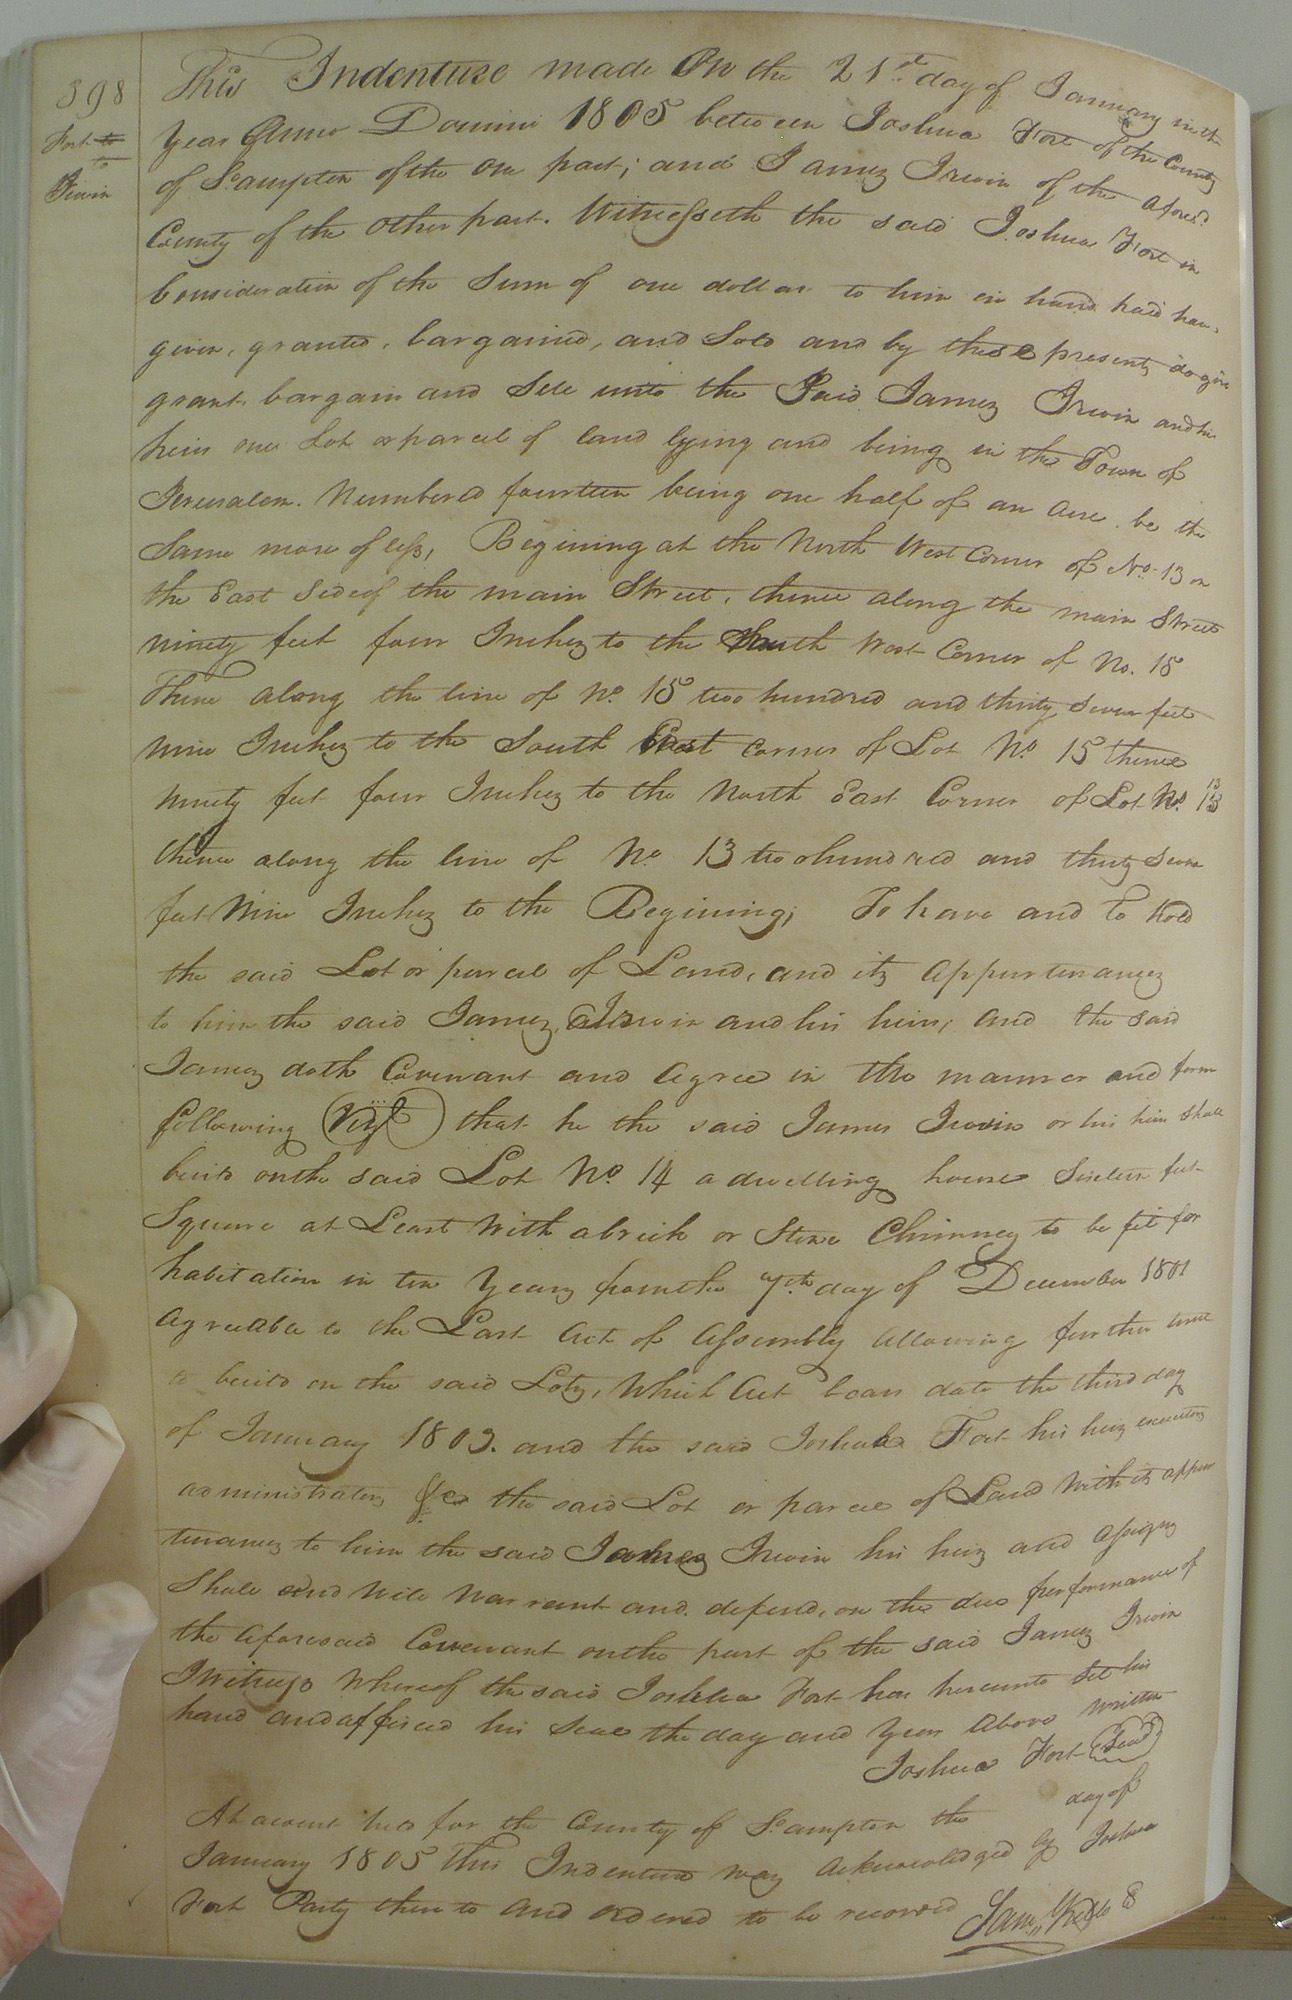 398
Fort to
to
Irwin
This Indenture made On the 21st day of January in the
Year Anno Domini 1805 between Joshua Fort of the County
of S.ampton of the one part; and James Irwin of the afores.d
County of the other part. Witnesseth the said Joshua Fort in
Consideration of the Sum of one dollar to him in hand paid hav.
given, granted, bargained, and Sold and by these presents do give
grant bargain and Sell unto the Said James Irwin and his
heirs one Lot or parcel of land lying and being in the Town of
Jerusalem. Numbered fourteen being one half of an acre be the
Same more of less, Begining at the North West Corner of No. 13 on
the East Side of the main Street, thence along the main Street
ninety feet four Inches to the South West Corner of No. 15
Thence along the line of No. 15 two hundred and thirty seven feet
nine Inches to the South East corner of Lot No. 15 thence
ninety feet four Inches to the North East Corner of Lot No. 13
thence along the line of No 13 two hundred and thirty Seven
feet Nine Inches to the Begining; To have and to Hold
the said Lot or parcel of Land, and its appurtenances
to him the said James Irwin and his heirs, and the said
James doth Covenant and agree in the manner and form
following (Vizt) that he the said James Irwin or his heirs shall
build on the said Lot No. 14 a dwelling house Sixteen feet
Square at Least With a brick or Stone Chimney to be fit for
habitation in ten Years from the 7th day of December 1801
agreeable to the Last Act of Assembly allowing further time
to build on the said Lots, Which Act bears date the third day
of January 1803. and the said Joshua Fort his heirs executors
administrators &c the said Lot or parcel of Land With its appur
tenances to him the said James Irwin his heirs and assigns
Shall and Will Warrant and defend, on the due performance of
the aforesaid Covenant on the part of the said James Irwin
In witness Whereof the said Joshua Fort has hereunto Set his
hand and affixed his Seal the day and Year Above Written
Joshua Fort (Seal)
At a court held for the County of S.ampton the day of
January 1805 This Indenture was acknowledged by Joshua
Fort Party thereto and ordered to be recorded